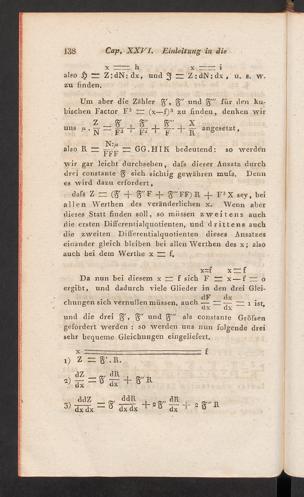 138 Cap. XXVI. Einleitung in die
x == h x == i
also ℌ = Z:dN:dx, und ℑ = Z:dN:dx, u. s. w.
zu finden.
Um aber die Zähler 𝔉, 𝔉′ und 𝔉″ für den ku-
bischen Factor F³ = (x—f)³ zu finden, denken wir
uns μ. Z/N = 𝔉/F³ + 𝔉′/F² + 𝔉″/F + X/R angesetzt,
also R = N:μ/FFF = GG.HIK bedeutend: so werden
wir gar leicht durchsehen, daſs dieser Ansatz durch
drei constante 𝔉 sich richtig gewähren muſs. Denn
es wird dazu erfordert,
daſs Z = (𝔉 + 𝔉′F + 𝔉″FF) R + F³X sey, bei
allen Werthen des veränderlichen x. Wenn aber
dieses Statt finden soll, so müssen zweitens auch
die ersten Differentialquotienten, und drittens auch
die zweiten Differentialquotienten dieses Ansatzes
einander gleich bleiben bei allen Werthen des x; also
auch bei dem Werthe x = f.
x=f x=f
Da nun bei diesem x = f sich F = x—f = 0
ergibt, und dadurch viele Glieder in den drei Glei-
chungen sich vernullen müssen, auch dF/dx = dx/dx = 1 ist,
und die drei 𝔉, 𝔉′ und 𝔉″ als constante Gröſsen
gefordert werden: so werden uns nun folgende drei
sehr bequeme Gleichungen eingeliefert.
x == f
1) Z = 𝔉.R.
2) dZ/dx = 𝔉 dR/dx + 𝔉′ R
3) ddZ/dx dx = 𝔉 ddR/dx dx + 2 𝔉′ dR/dx + 2 𝔉″ R